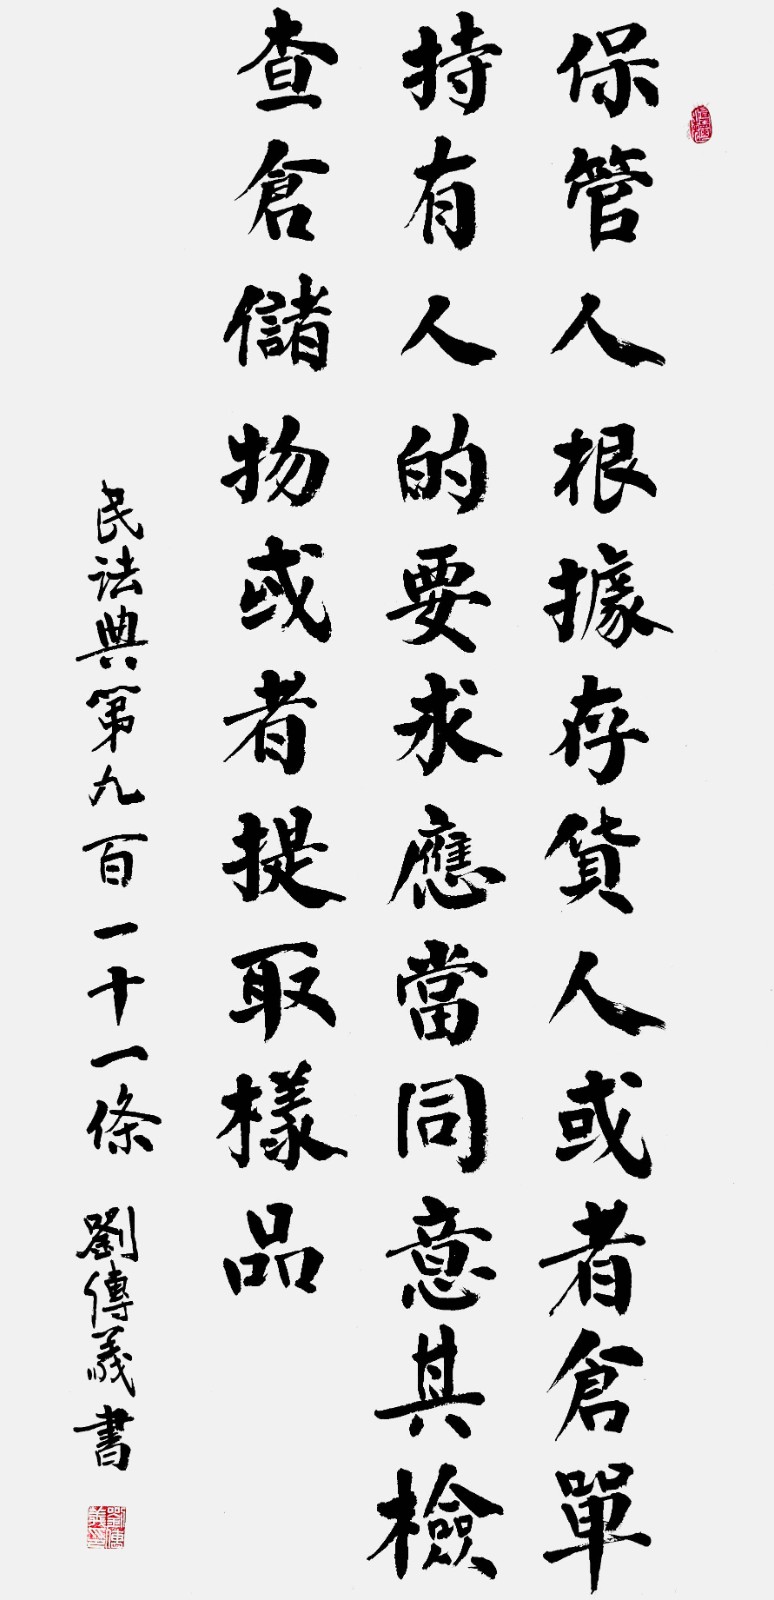 保管人根據存貨人或者倉單
持有人的要求應當同意其檢
查倉儲物或者提取樣品
民法典第九百一十一條 劉傳義書